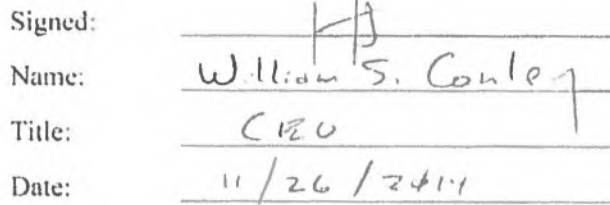 Signed:
Name: William S. Conley
Title: CEO
Date: 11/26/2014